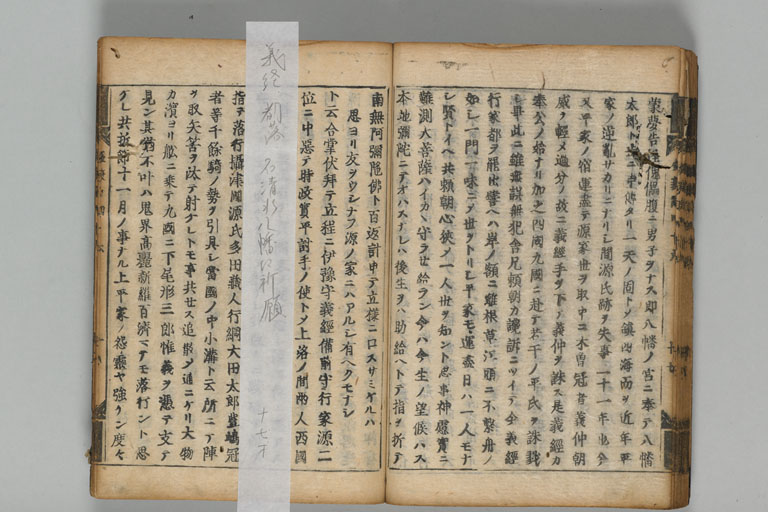 太郎ト共ニ申傳タリ一天ノ周ト鎮四海而ヲ近年平
家ノ逆亂サカリニナリシ間源氏跡ヲ失事二十一年也今
又平家ノ宿運盡テ源家世ヲ取中ニ木曽冠者義仲朝
威ヲ軽メ過分ノ故ニ義經手ヲ下テ義仲ヲ誅ス是義經カ
奉公ノ始ナリ加之四國九國ニ赴テ若干ノ平氏ヲ誅戮
シ畢此ニ雖無謀無犯舎兄頼朝カ讒訴ニツイテ今義經
行家都ヲ罷出譬ヘハ岸ノ額ニ離根草江頭ニ不繋舟ノ
如シ一門一味ニシテ世ヲトリシ平家モ運盡日ハ一人モナ
シ賢トイヘ共頼朝心狭シ一人世ヲ知ント思事神慮實ニ
難測大菩薩ハイカヽ守ラセ給ラン今ハ今生ノ望候ハス
本地彌陀ニテオハスナレハ後生ヲハ助給ヘトテ指ヲ折テ
南無阿彌陀佛ト百返計申テ立様ニ口スサミケルハ
思ヨリ友ヲウシナフ源ノ家ニハアルシ有ヘクモナシ
ト云合掌伏拜テ立程ニ伊豫守義經備前守行家源二
位ニ中惡テ時政實平討手ノ使トシ上洛ノ間兩人西國
義経都落 石清水八幡に祈願 十七才
指テ落行攝津國源氏多田蔵人行綱大田太郎豊嶋冠
者等千餘騎ノ勢ヲ引具シ當國ノ中小溝ト云所ニテ陣
ヲ取矢筈ヲ汰テ射ケレトモ事共セス追散シ通ニケリ大物
カ濱ヨリ舩ニ乗テ九國ニ下尾形三郎惟義ヲ憑テ支テ
見ン其猶不叶ハ鬼界高麗新羅百濟マテモ落行ント思
ケレ共折節十一月ノ事ナル上平家ノ怨靈ヤ強ケン度々